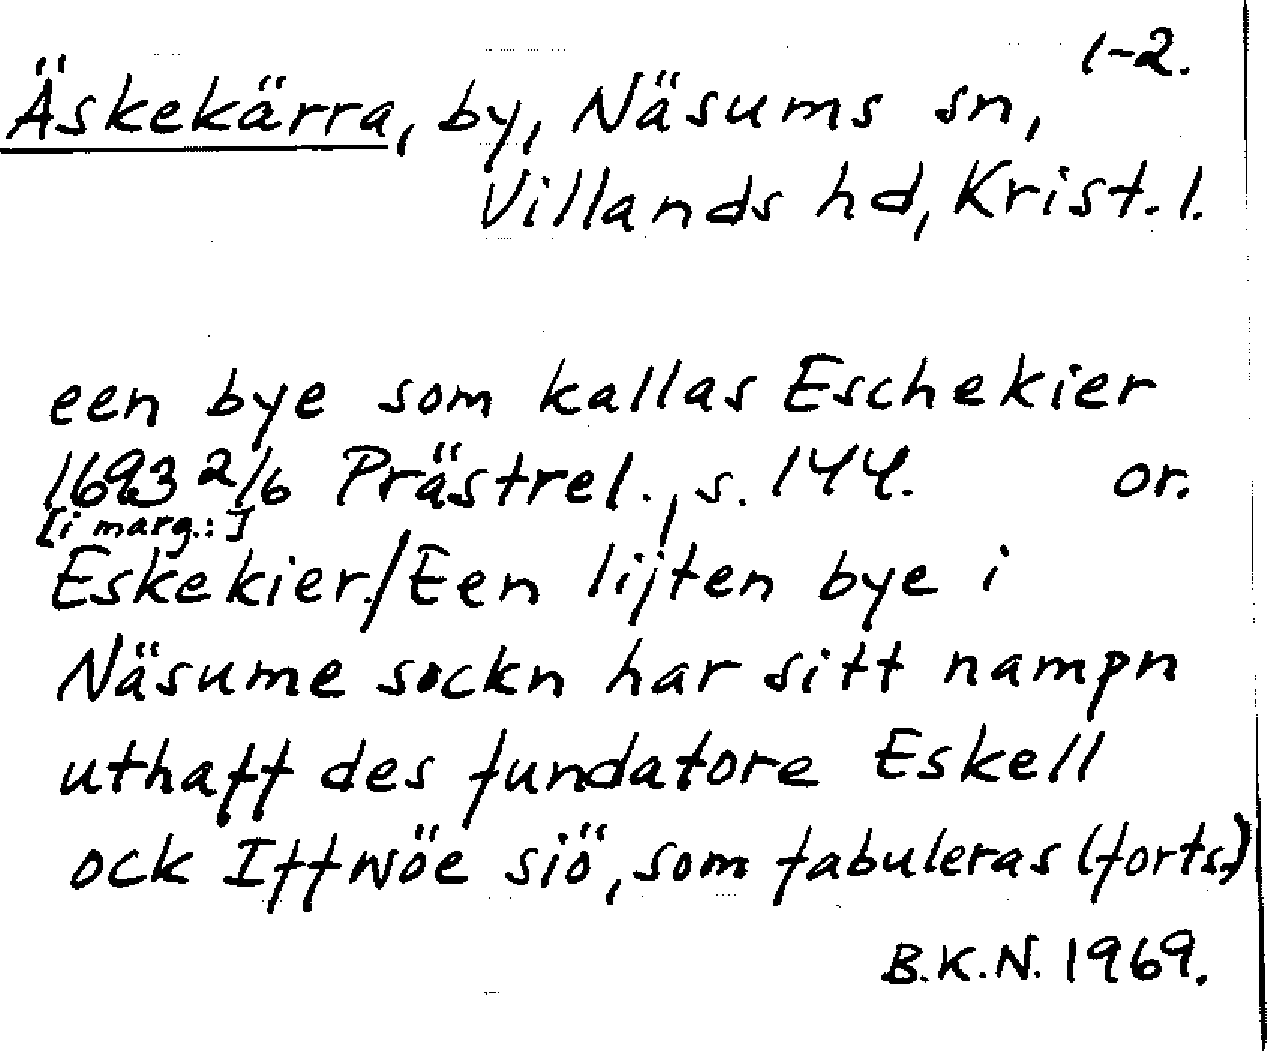 1-2.
Äskekärra, by, Näsums sn,
Villands hd, Krist. l.
een bye som kallas Eschekier
1693 2/6 Prästrel., s. 144. or.
[i marg.:]
Eskekier./Een lijten bye i
Näsume sockn har sitt nampn
uthaff des fundatore Eskell
ock Iffwöe siö, som fabuleras (forts.)
B.K.N. 1969.